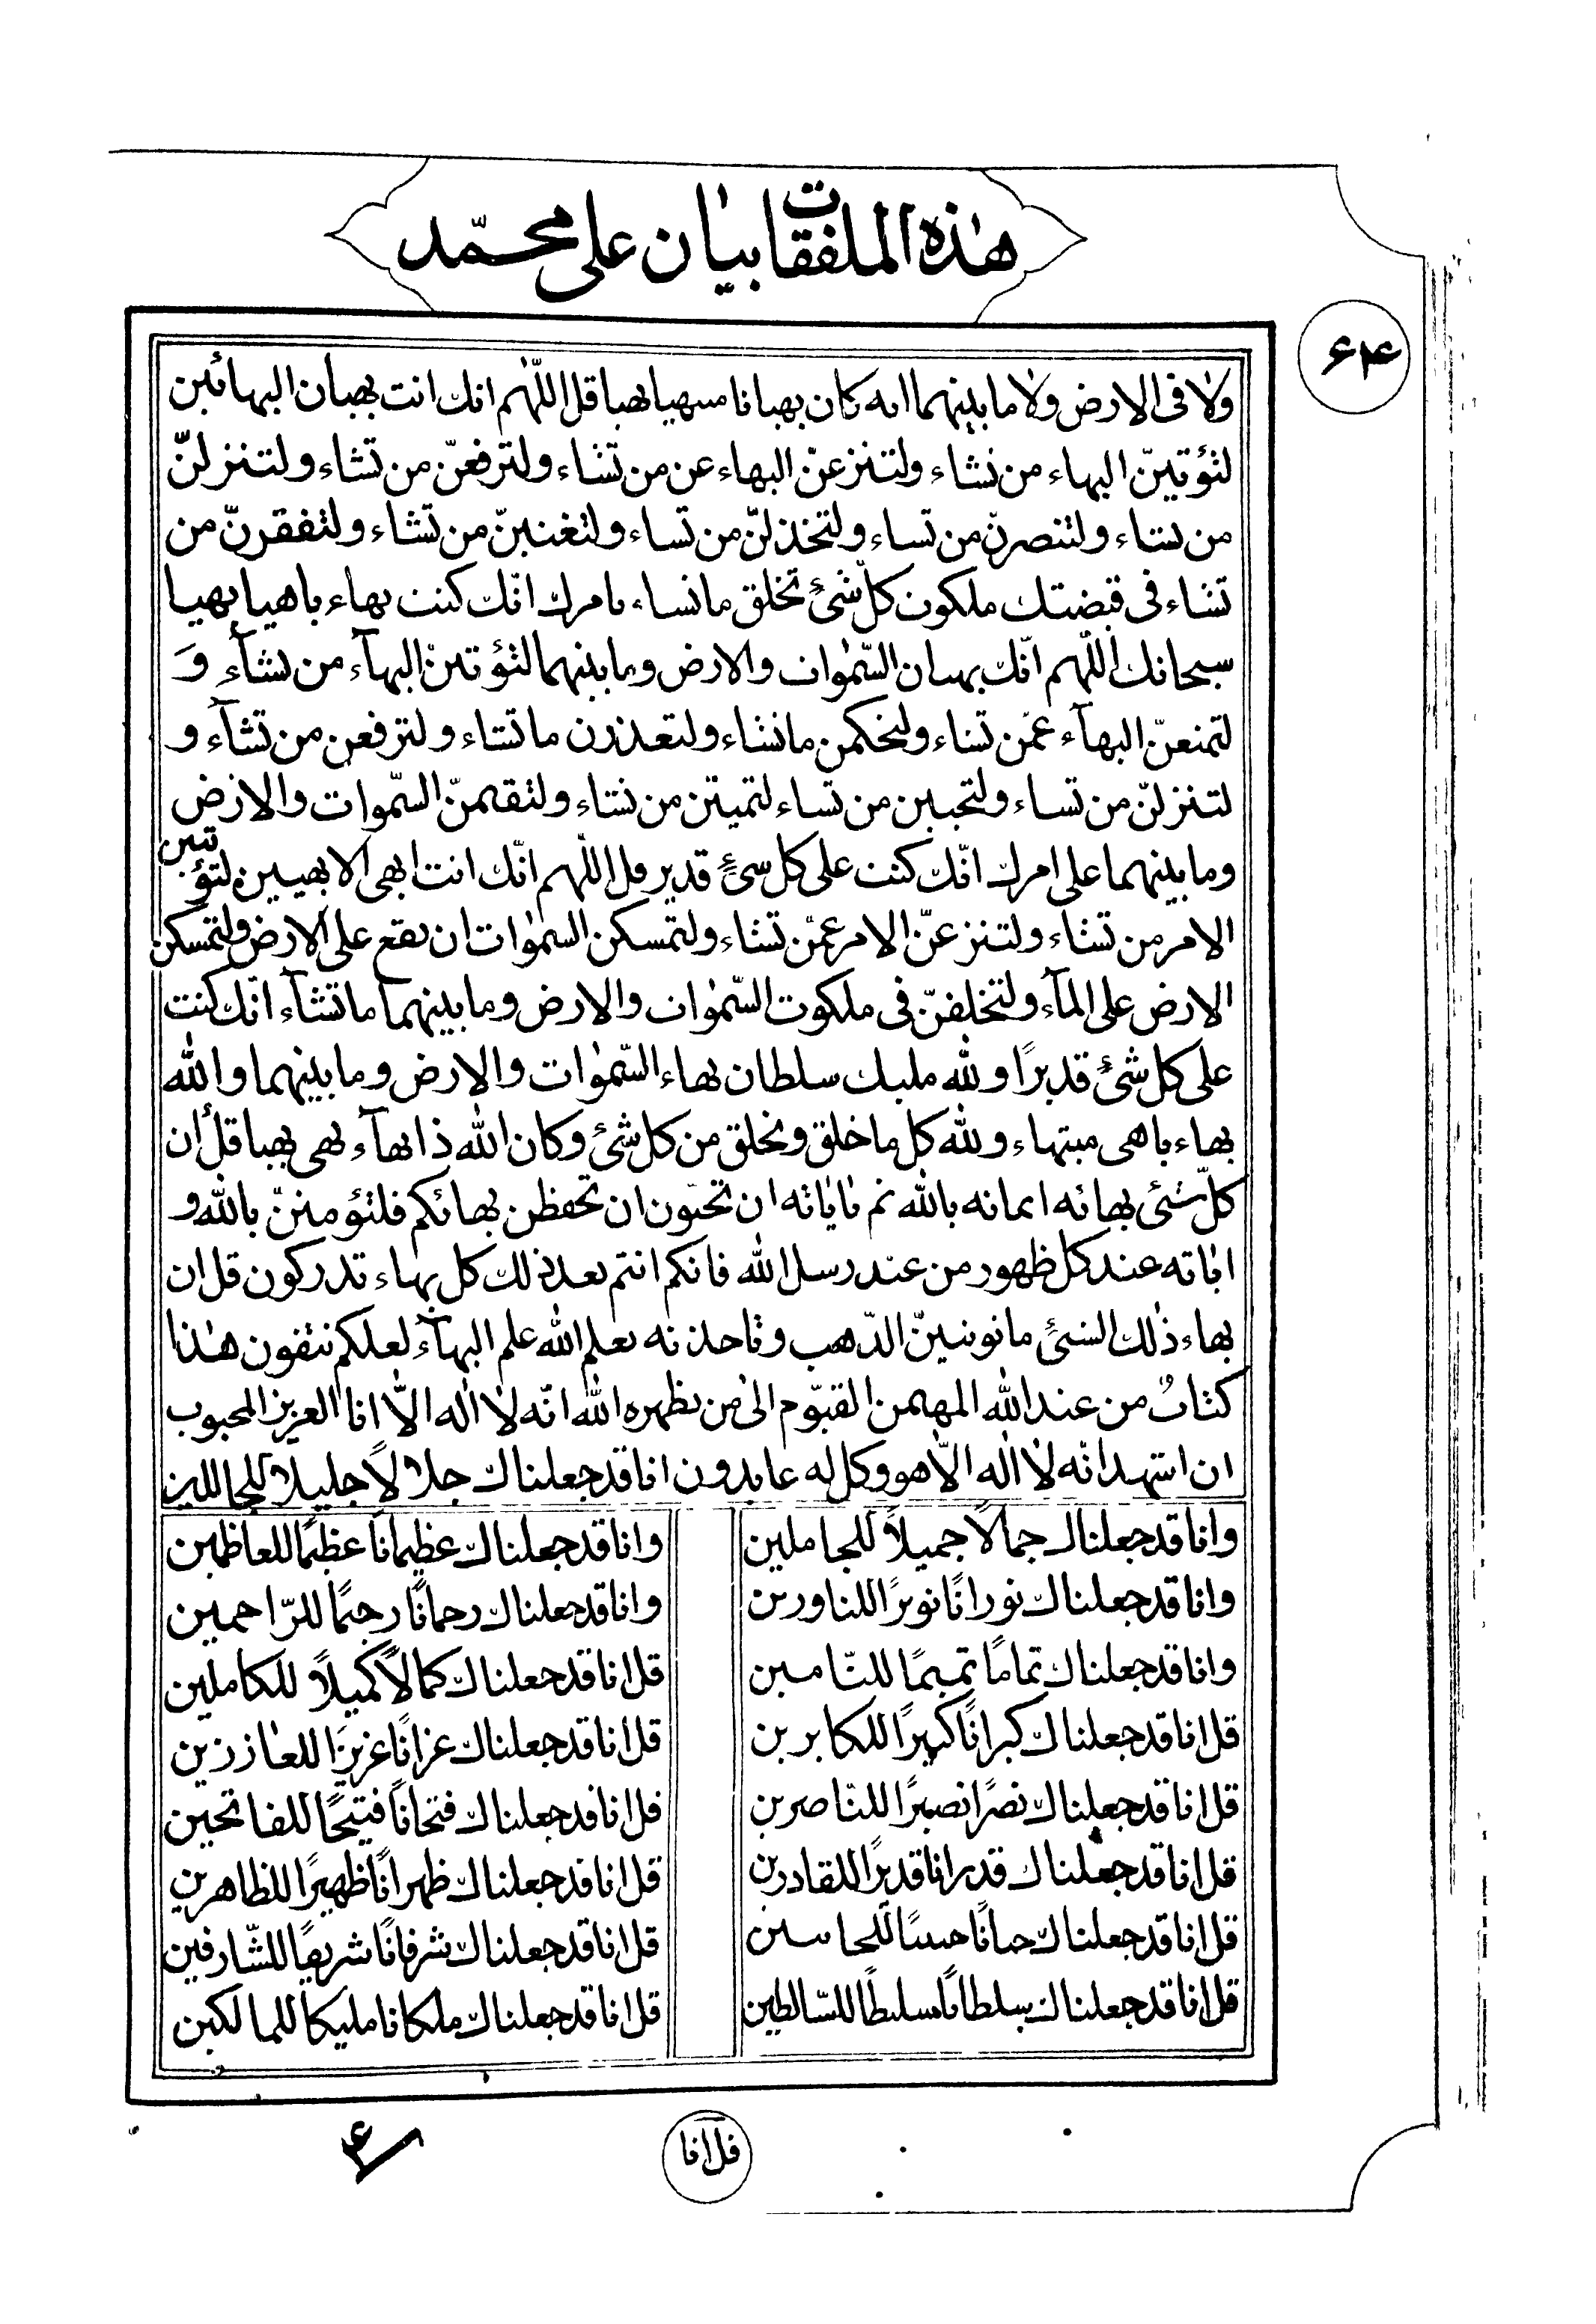 هٰذه الملفقات بيان على محمّد
۶۴
ولا فى الارض ولا ما بينهما انه كان بهيانا مبتهيا بهيا قل اللّهم انك انت بهيان البهائين
لتؤتينّ البهاء من تشاء ولتنزعنّ البهاء عن من تشاء ولترفعنّ من تشاء ولتنزلنّ
من تشاء ولتنصرنّ من تشاء ولتخذلنّ من تشاء ولتغنينّ من تشاء ولتفقرنّ من
تشاء فى قبضتك ملكوت كلّ شئ تخلق ما تشاء بامرك انّك كنت بهاء باهيا بهيا
سبحانك اللّهم انّك بهيان السّمٰوات والارض وما بينهما لتؤتينّ البهآء من تشآء وَ
لتمنعنّ البهآء عمّن تشاء ولتحكمن ما تشاء ولتقدرن ما تشاء ولترفعن من تشآء و
لتنزلنّ من تشاء ولتحيين من تشاء لتميتن من تشاء ولتقهمنّ السّموات والارض
وما بينهما على امرك انّك كنت على كل شئ قدير قل اللّهم انّك انت ابهى الابهيين لتؤتين
الامر من تشاء ولتنزعنّ الامر عمّن تشاء ولتمسكن السمٰوات ان تقع على الارض ولتمسكن
الارض على المآء ولتخلقنّ فى ملكوت السّمٰوات والارض وما بينهما ما تشآء انّك كنت
على كل شئ قديرًا ولله مليك سلطان بهاء السّمٰوات والارض وما بينهما والله
بهاء باهى مبتهاء ولله كل ما خلق ويخلق من كل شئ وكان الله ذا بهآء بهى بهيا قل ان
كلّ شئى بهائه ايمانه بالله ثم باياته ان تحبّون ان تحفظن بهائكم فلتؤمننّ بالله و
اياته عند كل ظهور من عند رسل الله فانكم انتم بعد ذلك كل بهاء تدركون قل ان
بهاء ذٰلك الشئ ما توتينّ الذّهب وتاخذنه بعلم الله علم البهآء لعلكم تتقون هٰذا
كتابٌ من عند الله المهيمن القيّوم الىٰ من يظهره الله انّه لا اله الّا انا العزيز المحبوب
ان اشهد انّه لا اله الّا هو وكل له عابدون انا قد جعلناك جلالًا جليلًا للجاللين
وانا قد جعلناك جمالًا جميلًا للجاملين وانا قد جعلناك عظيمانًا عظيمًا للعاظمين
وانا قد جعلناك نورانًا نويرًا للناورين وانا قد جعلناك رحمانًا رحيمًا للرّاحمين
وانا قد جعلناك تمامًا تميمًا للتّامين قل انا قد جعلناك كمالًا كميلًا للكاملين
قل انا قد جعلناك كبرانًا كبيرًا للكابرين قل انا قد جعلناك عزانًا عزيزًا للعازرين
قل انا قد جعلناك نصرًا نصيرًا للنّاصرين قل انا قد جعلناك فتحانًا فتيحًا للفاتحين
قل انا قد جعلناك قدرانا قديرًا للقادرين قل انا قد جعلناك ظهرانًا ظهيرًا للظاهرين
قل انا قد جعلناك قل انا قد جعلناك شرفانًا شريفًا للشّارفين
قل انا قد جعلناك سلطانًا سليطًا للسّالطين قل انا قد جعلناك ملكانا مليكا للمالكين
قل انا